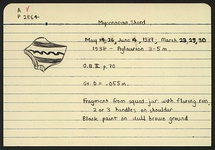 A
P 2864.
Mycenaean Sherd
May 19, 26, June 4, 1937, March 22, 23, 30
1938 - Αρλωνιον 3-5 m.
O.B. II p. 70
Gr. D. = .055 m.
Fragment from squat jar with flaring rim,
2 or 3 handles on shoulder
Black paint on dull brown ground